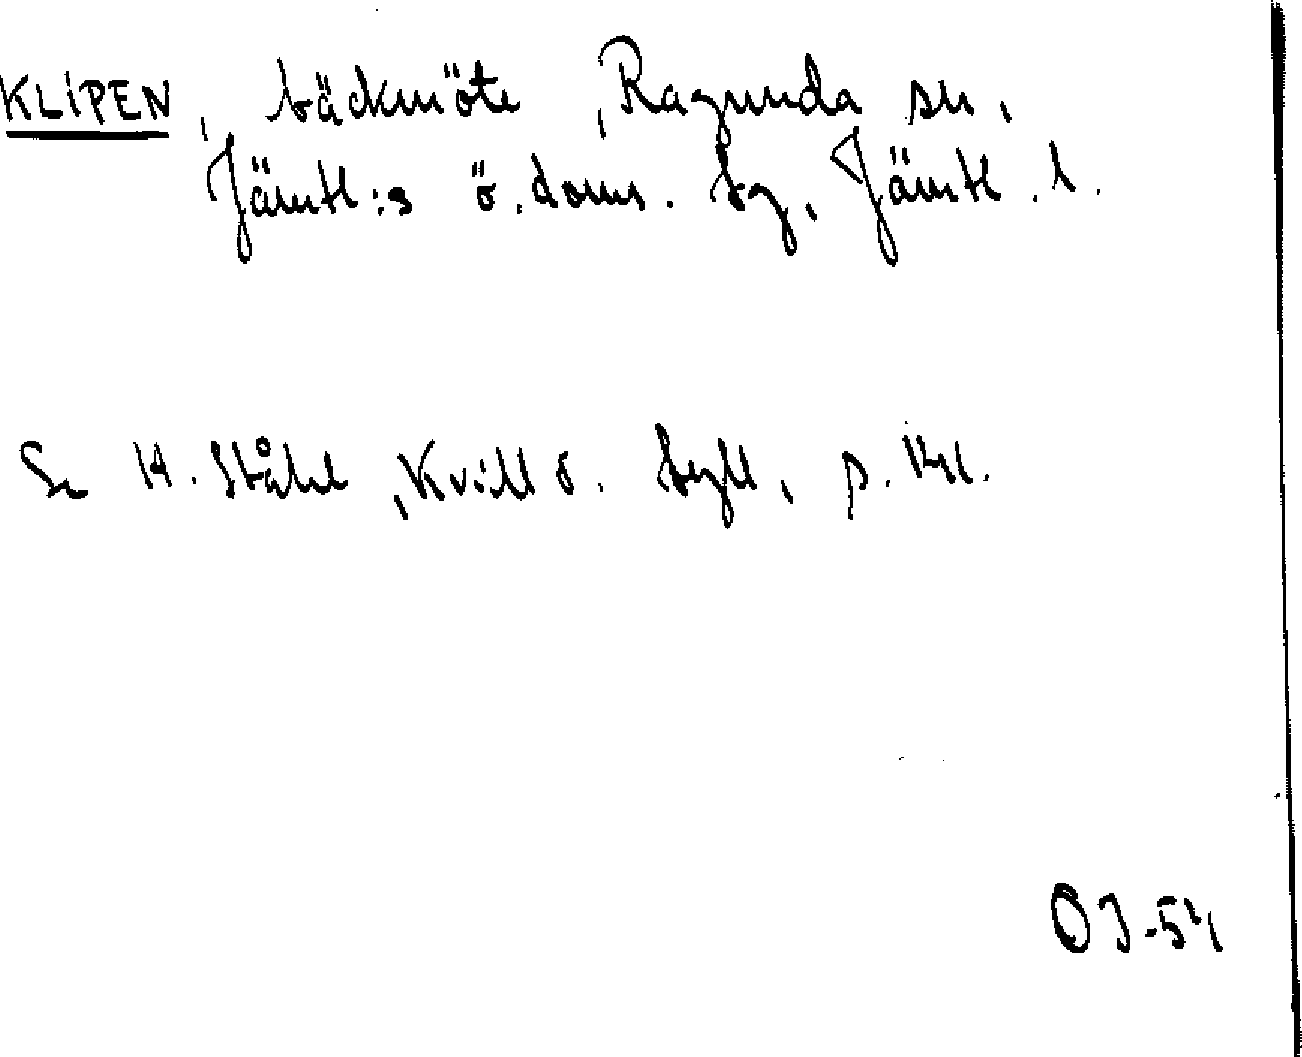 KLIPEN, bäckmöte, Ragunda sn,
Jämtl:s ö. doms. tg, Jämtl. l.
Se H. Ståhl, Kvill o. tyll, p.
OJ-54